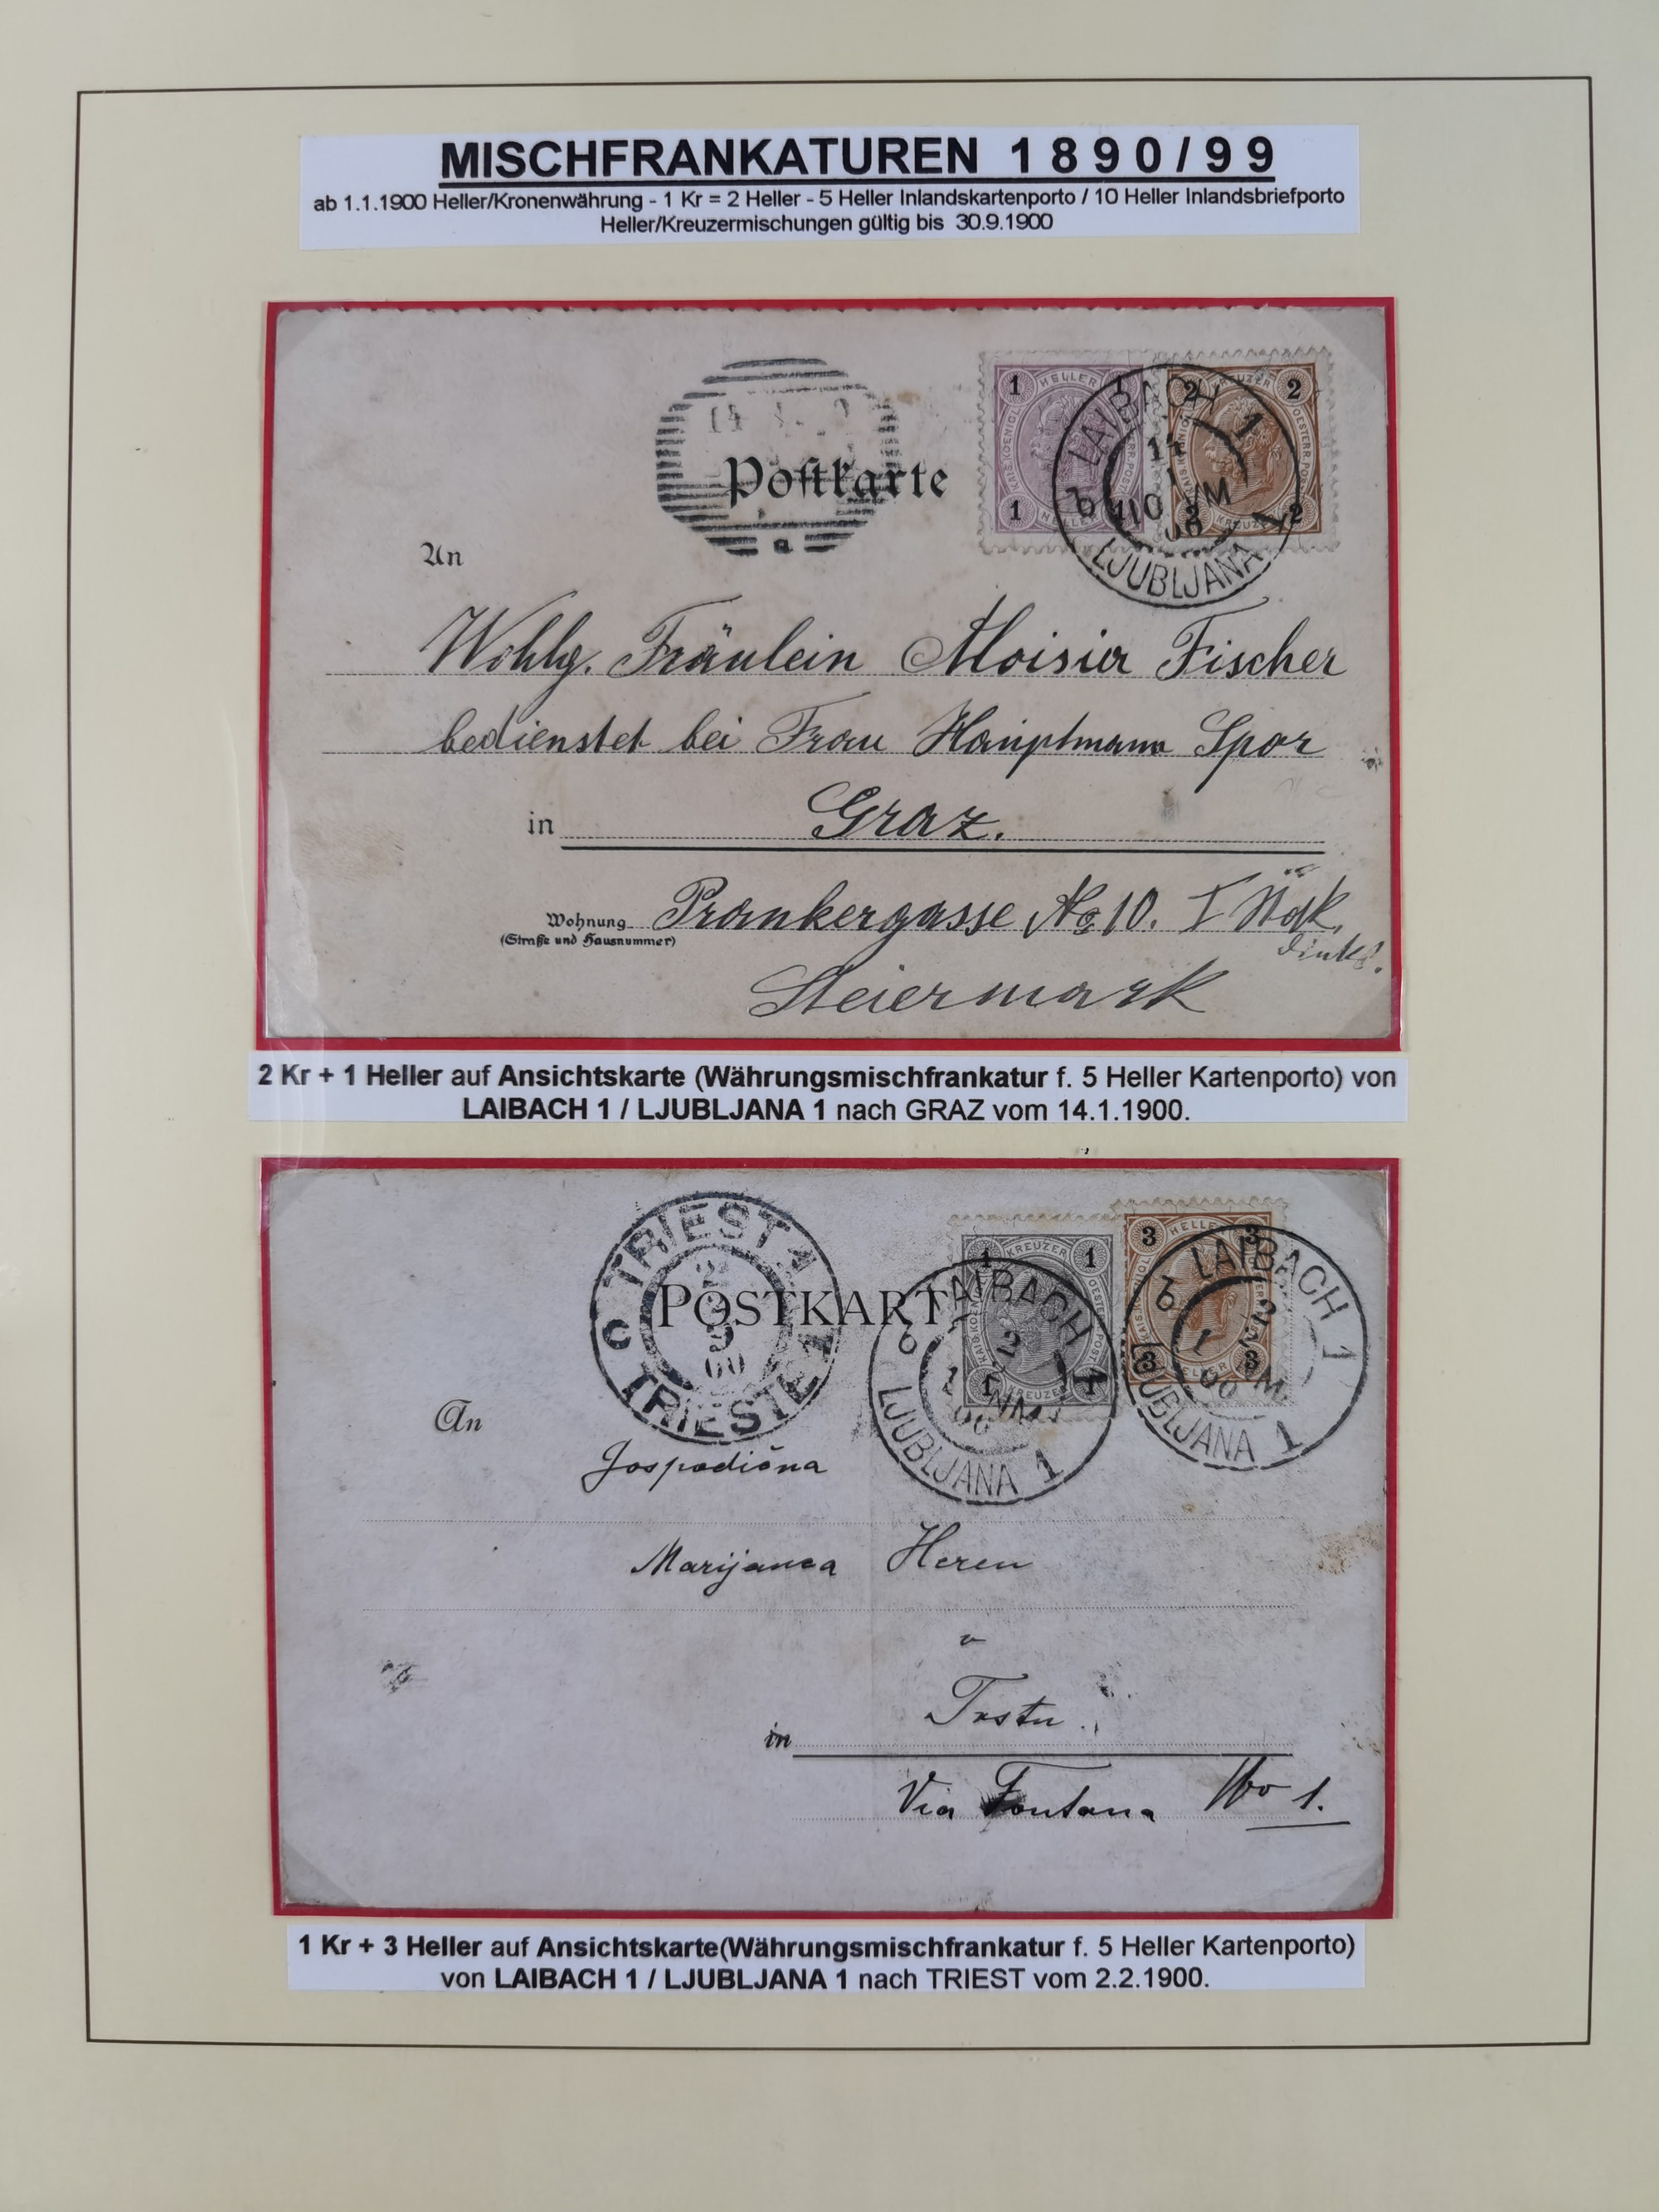 MISCHFRANKATUREN 1890/99
ab 1.1.1900 Heller/Kronenwährung - 1 Kr = 2 Heller - 5 Heller Inlandskartenporto / 10 Heller Inlandsbriefporto
Heller/Kreuzermischungen gültig bis 30.9.1900
1 HELLER 1
2 KREUZER 2
KAIS. KOENIGL. OESTERR. POST
LAIBACH 1
b
LJUBLJANA
Postkarte
An
Wohlg. Fräulein Aloisia Fischer
bedienstet bei Frau Hauptmann Spor
in Graz.
Wohnung Prankergasse No 10. I Stock,
(Straße und Hausnummer)
links.
Steiermark
2 Kr + 1 Heller auf Ansichtskarte (Währungsmischfrankatur f. 5 Heller Kartenporto) von
LAIBACH 1 / LJUBLJANA 1 nach GRAZ vom 14.1.1900.
TRIEST
TRIESTE
1 KREUZER 1
3 HELLER 3
LAIBACH 1
b
LJUBLJANA 1
LAIBACH 1
b
LJUBLJANA 1
POSTKARTE
An
Gospodična
Marijanca Heren
v
in Trstu.
Via Fontana No 1.
1 Kr + 3 Heller auf Ansichtskarte(Währungsmischfrankatur f. 5 Heller Kartenporto)
von LAIBACH 1 / LJUBLJANA 1 nach TRIEST vom 2.2.1900.